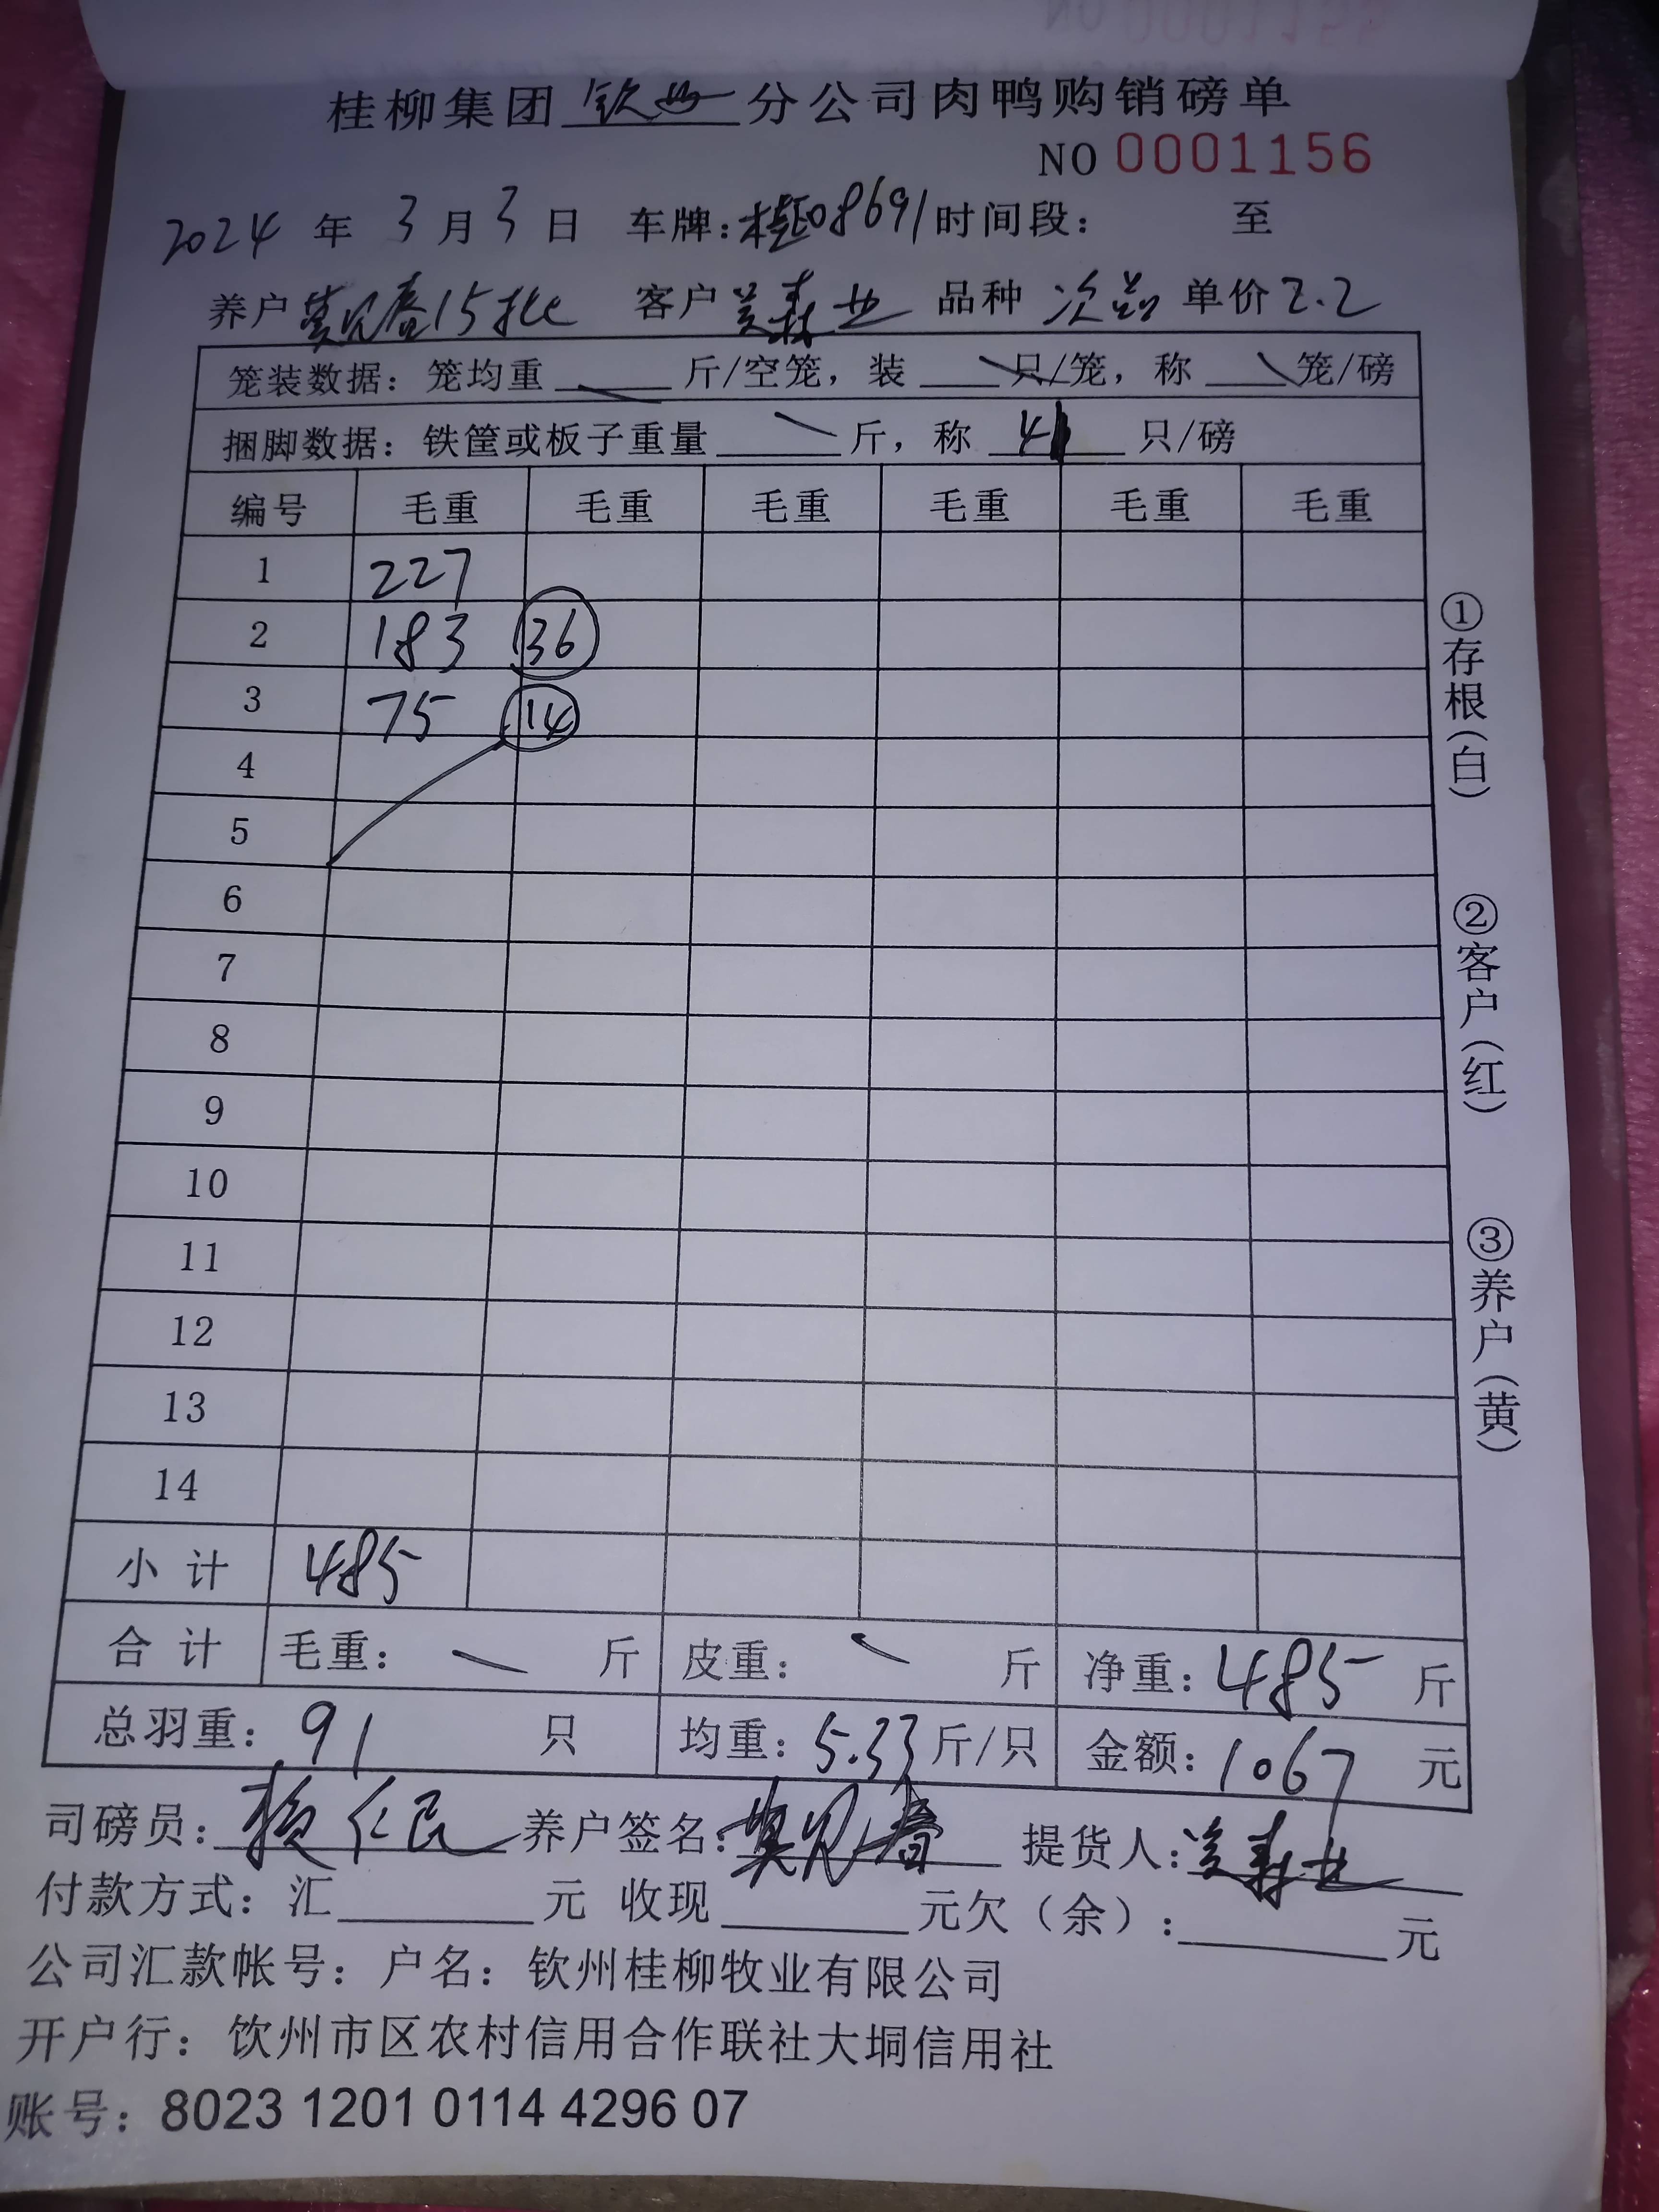 桂柳集团 钦州 分公司肉鸭购销磅单
NO 0001156
2024 年 3 月 3 日 车牌:桂08691 时间段: 至
养户 莫见春15批 客户 业 品种 次品 单价 2.2
笼装数据: 笼均重 斤/空笼, 装 只/笼, 称 笼/磅
捆脚数据: 铁筐或板子重量 斤, 称 41 只/磅
编号 毛重 毛重 毛重 毛重 毛重 毛重
1 227
2 183 36
3 75 14
4
5
6
7
8
9
10
11
12
13
14
小计 485
合计 毛重: 斤 皮重: 斤 净重: 485 斤
总羽重: 91 只 均重: 5.33 斤/只 金额: 1067 元
司磅员: 仁民 养户签名: 莫见春 提货人: 业
付款方式: 汇 元 收现 元欠(余): 元
公司汇款帐号: 户名: 钦州桂柳牧业有限公司
开户行: 饮州市区农村信用合作联社大垌信用社
账号: 8023 1201 0114 4296 07
①存根(白)
②客户(红)
③养户(黄)